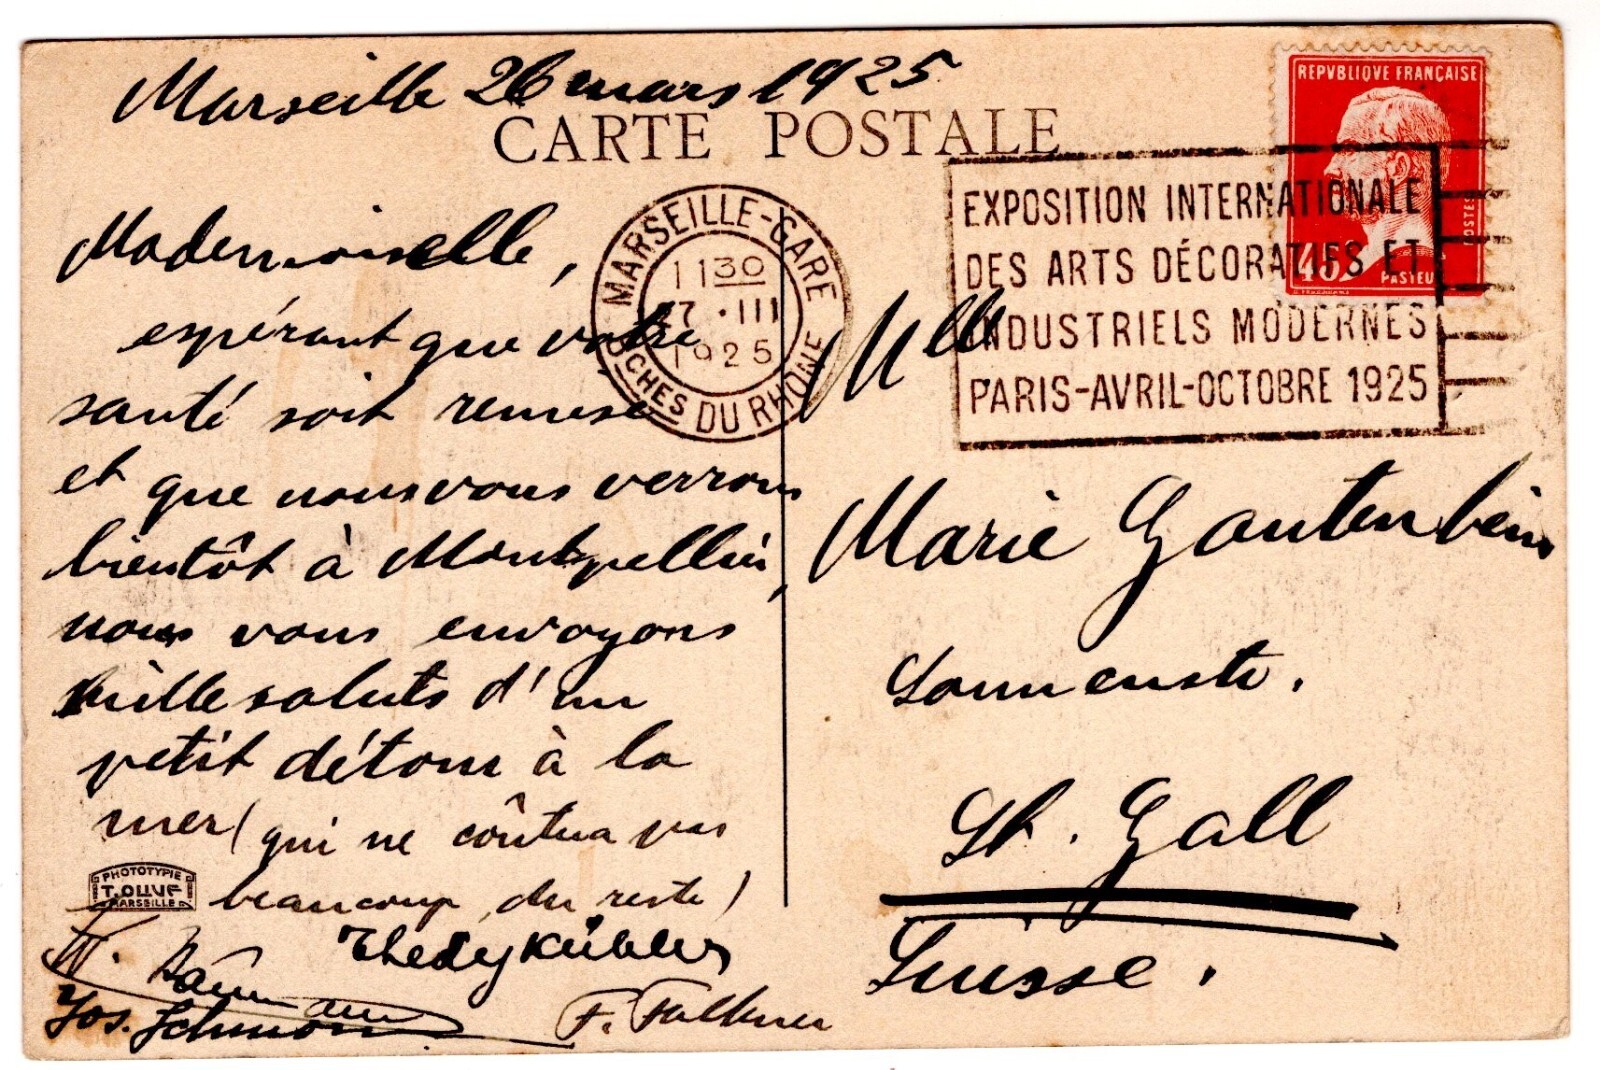 Marseille 26 mars 1925
CARTE POSTALE
REPVBLIQVE FRANÇAISE
45c
POSTES
PASTEUR
MARSEILLE-GARE
1130
27 · III
1925
BCHES DU RHONE
EXPOSITION INTERNATIONALE
DES ARTS DÉCORATIFS ET
INDUSTRIELS MODERNES
PARIS-AVRIL-OCTOBRE 1925
Mademoiselle,
espérant que votre
santé soit remise
et que nous vous verrons
bientôt à Montpellier,
nous vous envoyons
mille saluts d'un
petit détour à la
mer (qui ne coûtera pas
beaucoup, du reste)
PHOTOTYPIE
T. OLLIVE
MARSEILLE
Thedy Kübler
W.
Jos.
F. Falkner
Mlle
Marie Gantenbein
Sonnenstr.
St. Gall
Suisse.